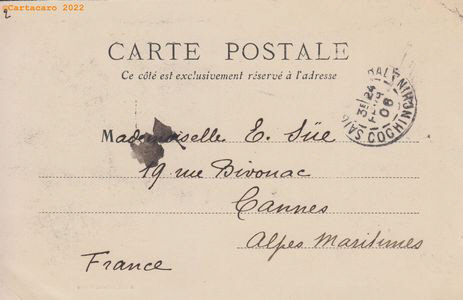 ©Cartacaro 2022
2
CARTE POSTALE
Ce côté est exclusivement réservé à l'adresse
Mademoiselle E. Süe
19 rue Bivouac
Cannes
Alpes Maritimes
France
COCHINCHINE
24
06